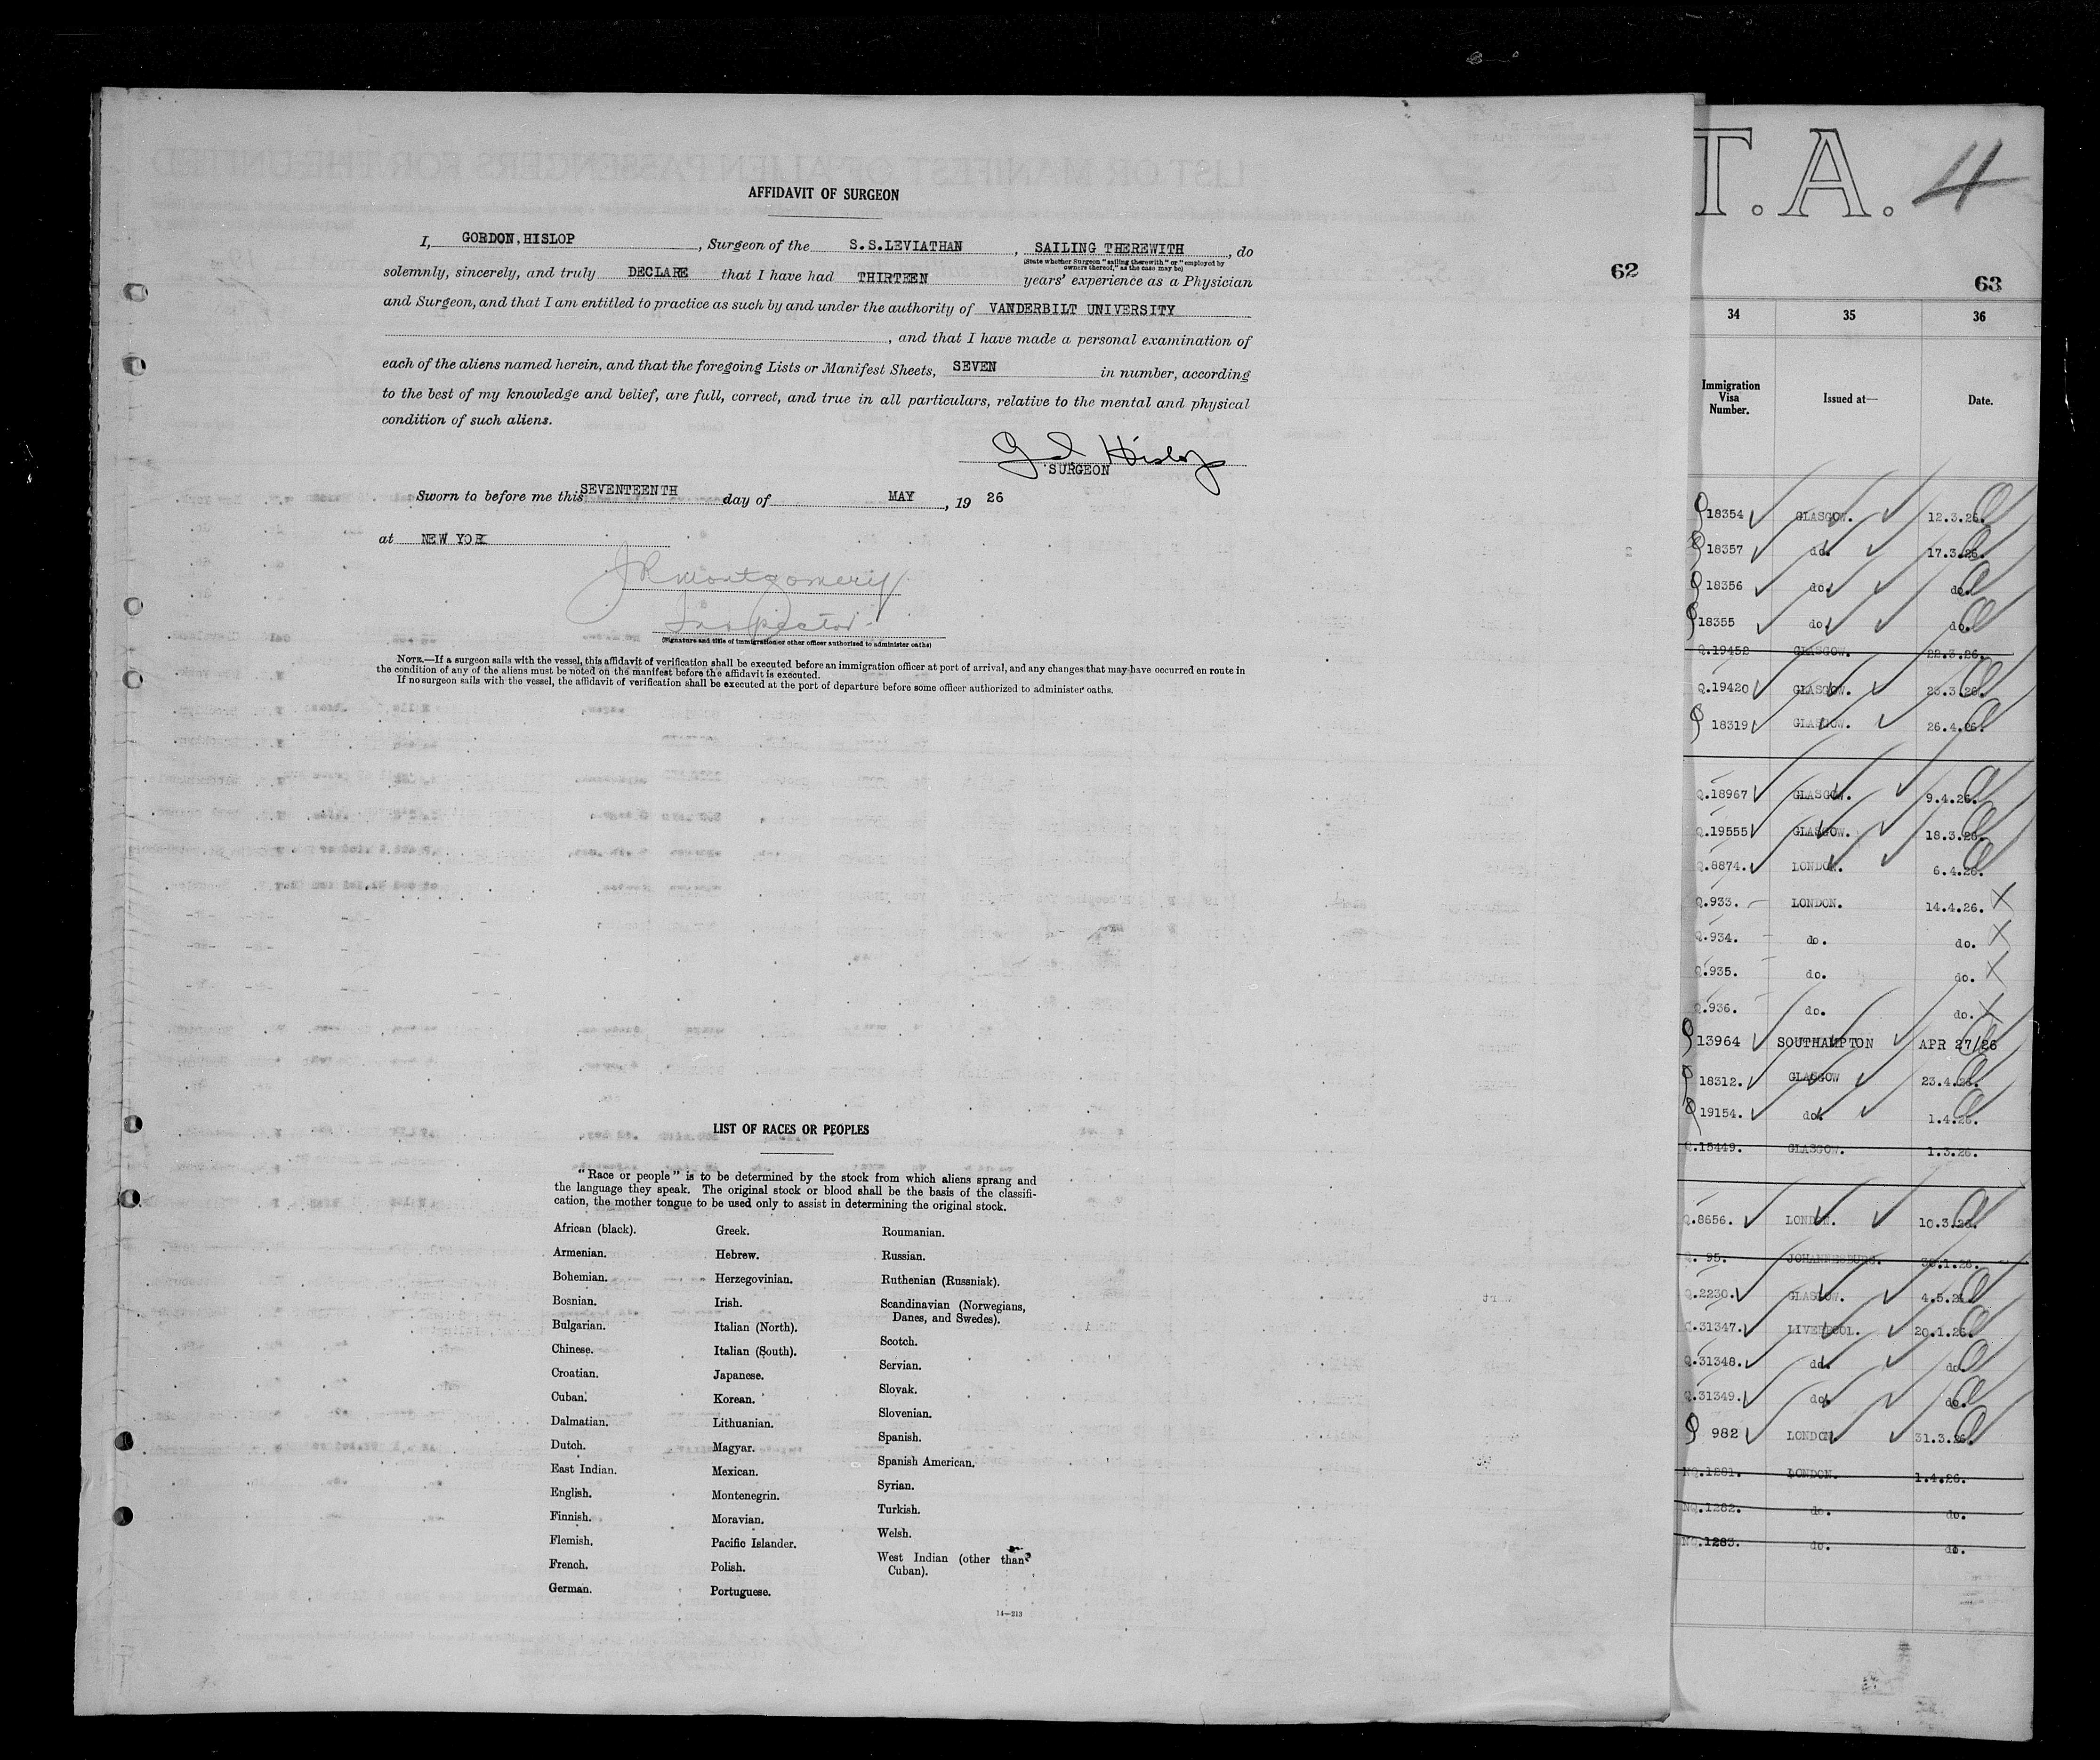 AFFIDAVIT OF SURGEON
I, GORDON,HISLOP, Surgeon of the S.S.LEVIATHAN, SAILING THEREWITH, do
(State whether Surgeon "sailing therewith" or "employed by
owners thereof," as the case may be)
solemnly, sincerely, and truly DECLARE that I have had THIRTEEN years' experience as a Physician
and Surgeon, and that I am entitled to practice as such by and under the authority of VANDERBILT UNIVERSITY
, and that I have made a personal examination of
each of the aliens named herein, and that the foregoing Lists or Manifest Sheets, SEVEN in number, according
to the best of my knowledge and belief, are full, correct, and true in all particulars, relative to the mental and physical
condition of such aliens.
Hislop
SURGEON
Sworn to before me this SEVENTEENTH day of MAY, 19 26
at NEW YORK
JRMontgomery
Inspector
(Signature and title of immigration or other officer authorized to administer oaths)
NOTE.—If a surgeon sails with the vessel, this affidavit of verification shall be executed before an immigration officer at port of arrival, and any changes that may have occurred en route in
the condition of any of the aliens must be noted on the manifest before the affidavit is executed.
If no surgeon sails with the vessel, the affidavit of verification shall be executed at the port of departure before some officer authorized to administer oaths.
62
LIST OF RACES OR PEOPLES
"Race or people" is to be determined by the stock from which aliens sprang and
the language they speak. The original stock or blood shall be the basis of the classifi-
cation, the mother tongue to be used only to assist in determining the original stock.
African (black).
Armenian.
Bohemian.
Bosnian.
Bulgarian.
Chinese.
Croatian.
Cuban.
Dalmatian.
Dutch.
East Indian.
English.
Finnish.
Flemish.
French.
German.
Greek.
Hebrew.
Herzegovinian.
Irish.
Italian (North).
Italian (South).
Japanese.
Korean.
Lithuanian.
Magyar.
Mexican.
Montenegrin.
Moravian.
Pacific Islander.
Polish.
Portuguese.
Roumanian.
Russian.
Ruthenian (Russniak).
Scandinavian (Norwegians,
Danes, and Swedes).
Scotch.
Servian.
Slovak.
Slovenian.
Spanish.
Spanish American.
Syrian.
Turkish.
Welsh.
West Indian (other than
Cuban).
14—213
T.A. 4
63
34 35 36
Immigration
Visa
Number.
Issued at—
Date.
Q 18354 GLASGOW. 12.3.26.
Q 18357 do. 17.3.26.
Q 18356 do. do.
Q 18355 do. do.
Q.19452 GLASGOW. 22.3.26.
Q.19420 GLASGOW. 23.3.26.
Q 18319 GLASGOW. 26.4.26.
Q.18967 GLASGOW. 9.4.26.
Q.19555 GLASGOW. 18.3.26.
Q.8874. LONDON. 6.4.26.
Q.933. LONDON. 14.4.26. X
Q.934. do. do. X
Q.935. do. do. X
Q.936. do. do. X
Q 13964 SOUTHAMPTON APR 27/26
Q 18312. GLASGOW 23.4.26.
Q 19154. do. 1.4.26.
Q.15449. GLASGOW. 1.3.26.
Q.8656. LONDON. 10.3.26.
Q. 95. JOHANNESBURG. 30.1.26.
Q.2230. GLASGOW. 4.5.26
Q.31347. LIVERPOOL. 20.1.26.
Q.31348. do. do.
Q.31349. do. do.
Q 982 LONDON. 31.3.26.
NQ.1281. LONDON. 1.4.26.
NQ.1282. do. do.
NQ.1283. do. do.